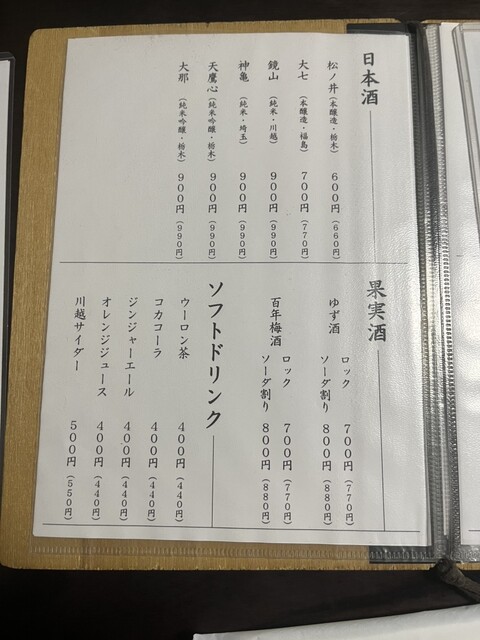 日本酒
松ノ井（本醸造・栃木） 600円（660円）
大七（本醸造・福島） 700円（770円）
鏡山（純米・川越） 900円（990円）
神亀（純米・埼玉） 900円（990円）
天鷹心（純米吟醸・栃木） 900円（990円）
大那（純米吟醸・栃木） 900円（990円）
果実酒
ゆず酒
ロック 700円（770円）
ソーダ割り 800円（880円）
百年梅酒
ロック 700円（770円）
ソーダ割り 800円（880円）
ソフトドリンク
ウーロン茶 400円（440円）
コカコーラ 400円（440円）
ジンジャーエール 400円（440円）
オレンジジュース 400円（440円）
川越サイダー 500円（550円）